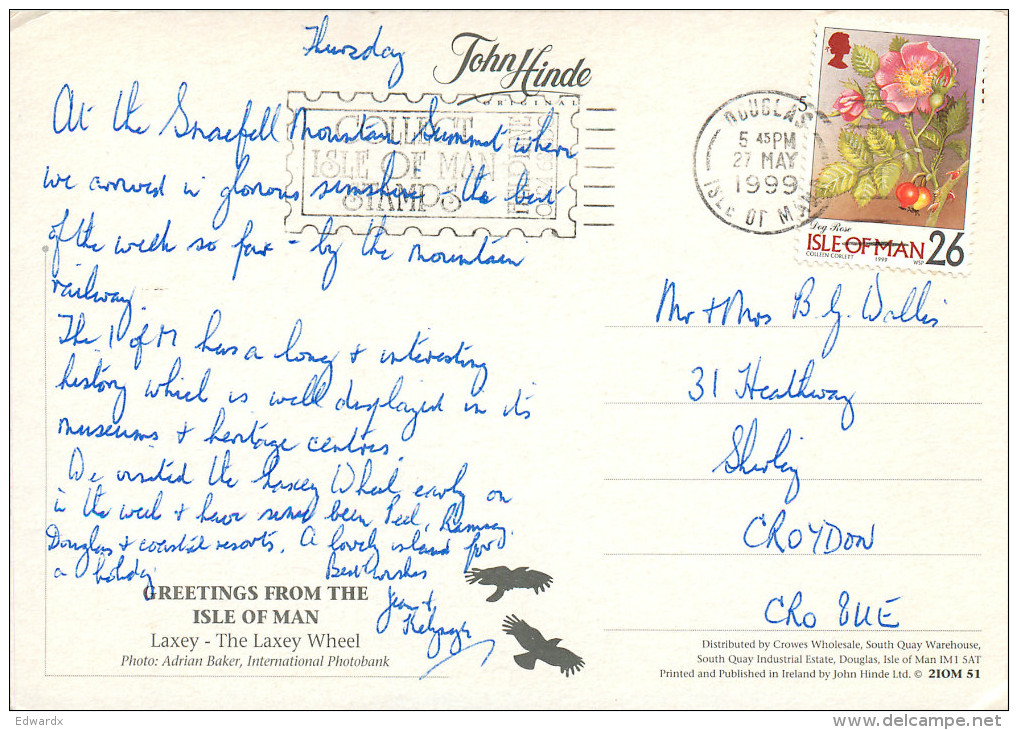 Thursday
John Hinde
ORIGINAL
At the Snaefell Mountain Summit where
we arrived in glorious sunshine - the best
of the week so far - by the mountain
railway.
The I of M has a long + interesting
history which is well displayed in its
museums + heritage centres.
We visited the Laxey Wheel early on
in the week + have since been Peel, Ramsey,
Douglas + coastal resorts. A lovely island for
a holiday
Best wishes
Jean +
GREETINGS FROM THE
ISLE OF MAN
Laxey - The Laxey Wheel
Photo: Adrian Baker, International Photobank
COLLECT
ISLE OF MAN
STAMPS
DOUGLAS
5 45PM
27 MAY
1999
ISLE OF MAN
Dog Rose
ISLE OF MAN 26
COLLEEN CORLETT 1998 WSP
Mr + Mrs B. G. Wallis
31 Heathway
Shirley
CROYDON
CRO 8UE
Distributed by Crowes Wholesale, South Quay Warehouse,
South Quay Industrial Estate, Douglas, Isle of Man IM1 5AT
Printed and Published in Ireland by John Hinde Ltd. © 2IOM 51
Edwardx
www.delcampe.net